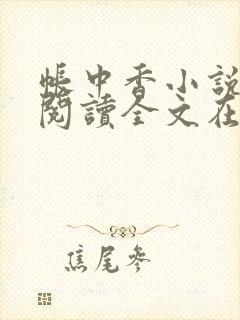 帳中香小說
閱讀全文在
焦尾參